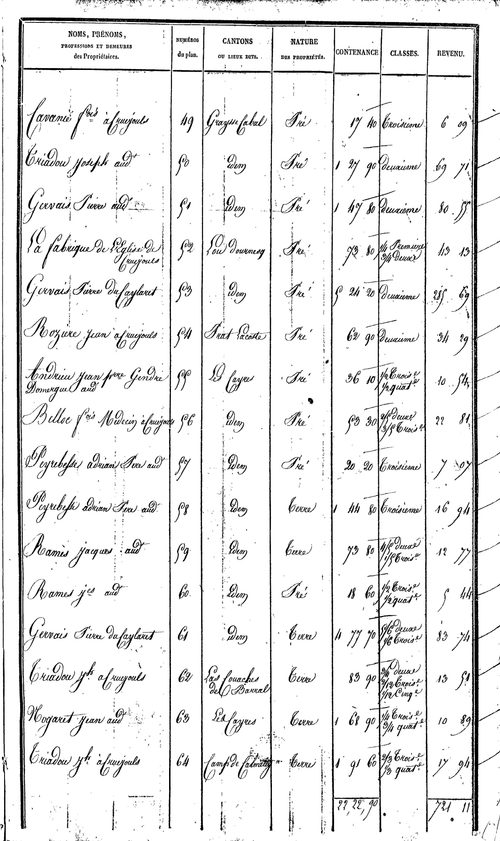 NOMS, PRÉNOMS, PROFESSIONS ET DEMEURES des Propriétaires. NUMÉROS du plan. CANTONS OU LIEUX DITS. NATURE DES PROPRIÉTÉS. CONTENANCE CLASSES. REVENU.
Cavanié fois à Cruéjouls 49 Graysse Cabal Pré 17 40 Troisieme 6 09
Triadou joseph aud. 50 idem Pré 1 27 90 Deuxieme 69 71
Gervais Pierre aud. 51 idem Pré 1 47 80 Deuxieme 80 55
La fabrique de L'Eglise de Cruejouls 52 Lou Dourmeq Pré 73 80 1/4 Premiere 3/4 Deuxe 43 13
Gervais Pierre du Caylaret 53 idem Pré 5 24 20 Deuxieme 285 69
Rozière jean à Cruejouls 54 Prat Lacoste Pré 62 90 Deuxieme 34 29
Andrieu jean pre Gendre Domergue aud. 55 Les Cayres Pré 36 10 1/2 Trois.e 1/2 quat.e 10 54
Belloc fois Médecin à Cruejouls 56 idem Pré 53 30 2/5 deuxe 3/5 Trois.e 22 81
Peyrebesse adrian Pere aud. 57 idem Pré 20 20 Troisieme 7 07
Peyrebesse adrian Pere aud. 58 idem Terre 1 44 80 Troisieme 16 94
Ramés jacques aud. 59 idem Terre 73 80 4/5 deuxe 1/5 Trois.e 12 77
Ramés jes aud. 60 idem Pré 18 60 1/2 Trois.e 1/2 quat.e 5 44
Gervais Pierre du Caylaret 61 idem Terre 4 77 70 5/6 deuxe 1/6 Trois.e 83 74
Triadou jph à Cruejouls 62 Las Couaches del Barral Terre 83 90 deuxe Trois.e Cinq.e 13 51
Nogaret jean aud. 63 Les Cayres Terre 1 68 90 1/4 Trois.e 3/4 quat.e 10 89
Triadou jph à Cruejouls 64 Camp de Terre 1 91 60 2/3 Trois.e 1/3 quat.e 17 94
22, 22, 90 721 11